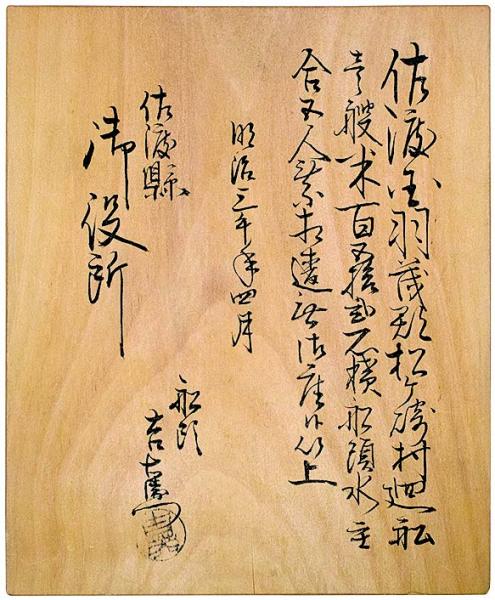 佐渡国羽茂郡松ヶ崎村廻船
壱艘米百五拾弐石積船頭水主
合五人乗相違無御座候以上
明治三午年四月
佐渡縣
御役所
船頭
吉